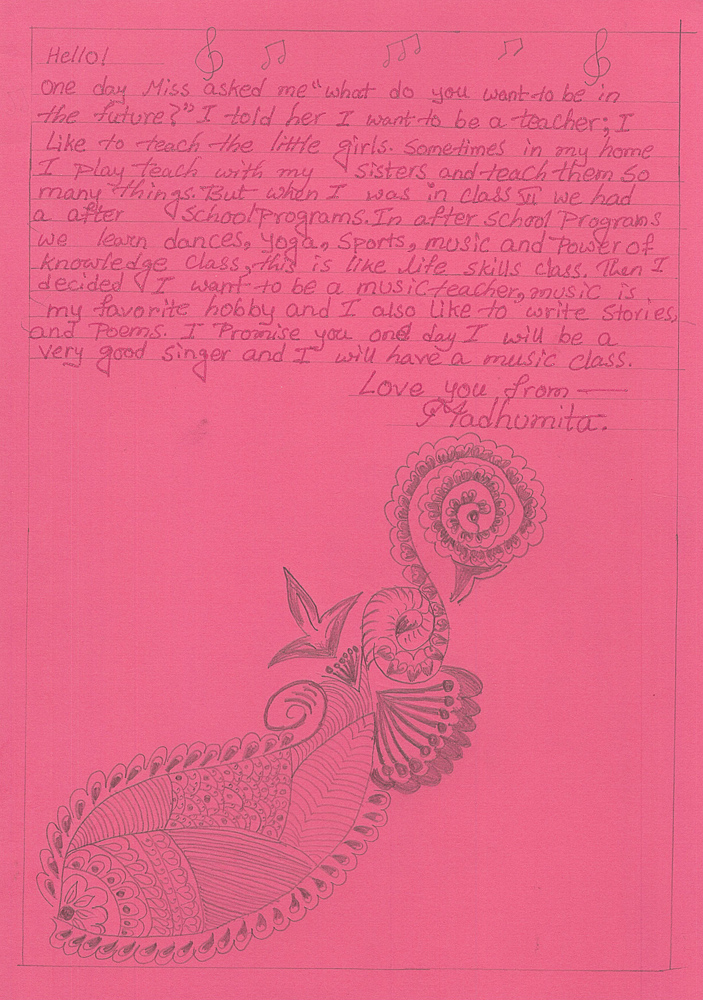 Hello!
one day Miss asked me "what do you want to be in
the future?" I told her I want to be a teacher; I
Like to teach the little girls. Sometimes in my home
I play teach with my sisters and teach them so
many things. But when I was in class VI we had
a after school programs. In after school Programs
we learn dances, yoga, sports, music and Power of
knowledge class, this is like life skills class. Then I
decided I want to be a music teacher, music is
my favorite hobby and I also like to write stories,
and Poems. I Promise you one day I will be a
very good singer and I will have a music class.
Love you from —
Madhumita.